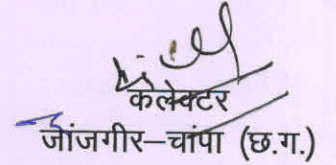 कलेक्टर
जांजगीर–चांपा (छ.ग.)